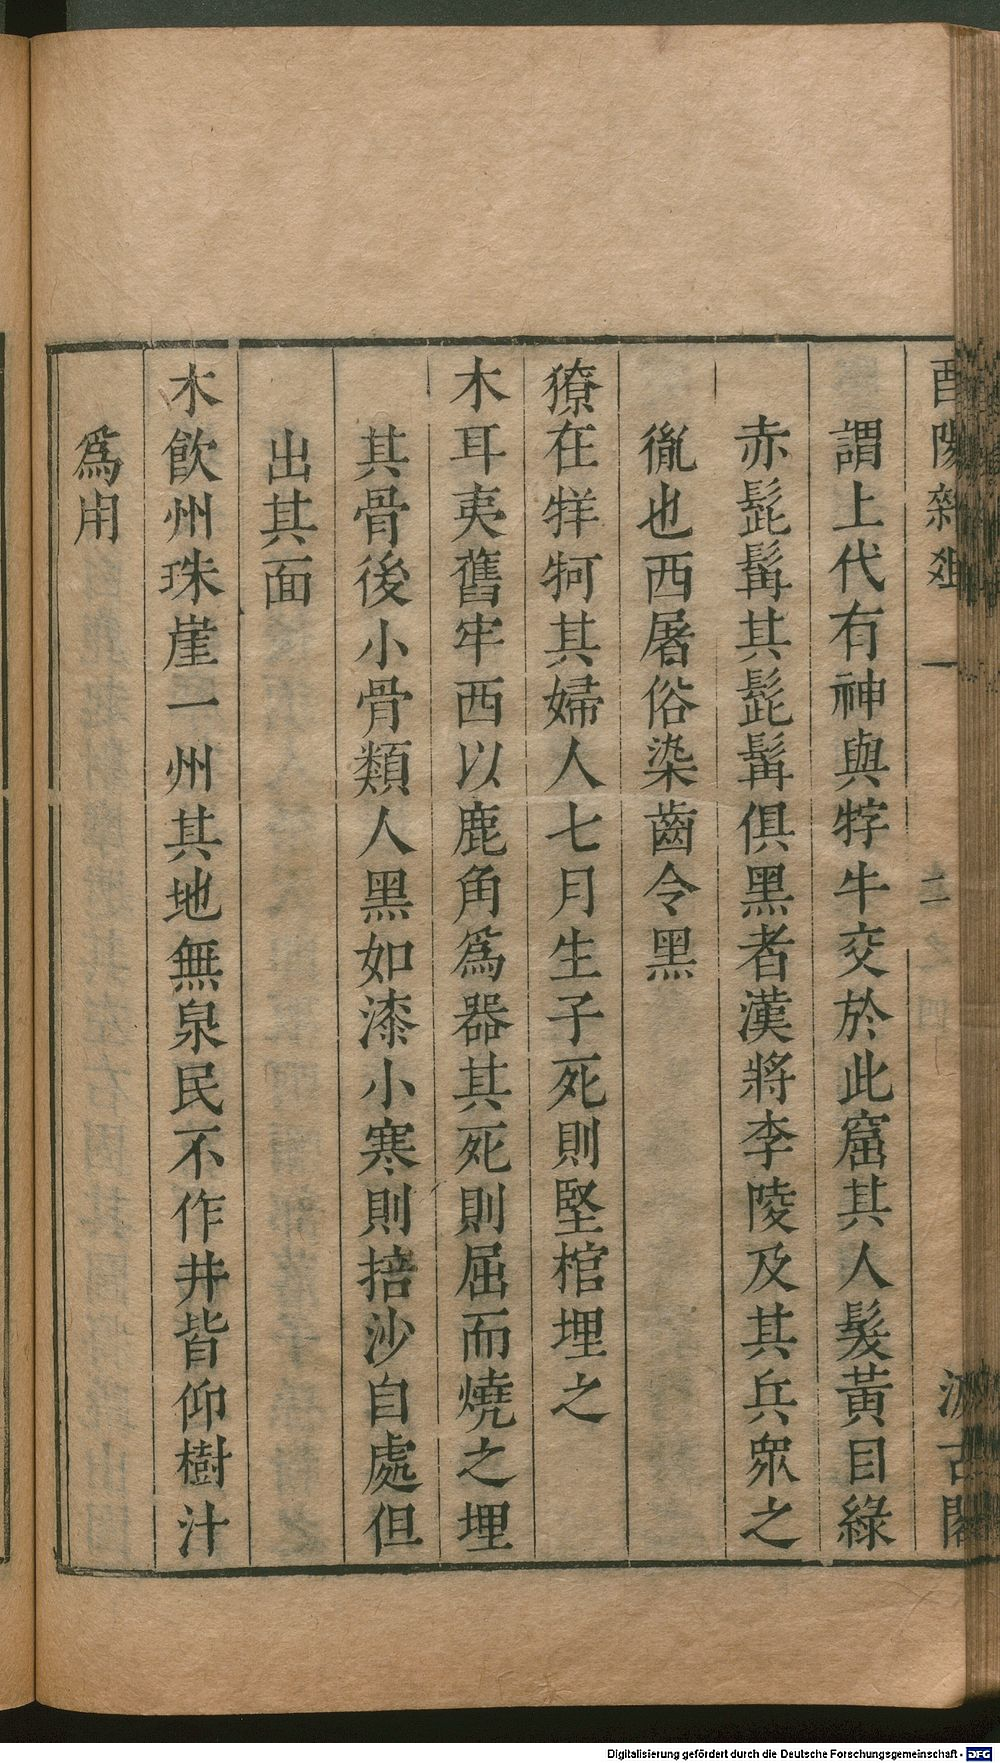 酉陽雜俎
卷之四
二
汲古閣
謂上代有神與牸牛交於此窟其人髮黃目綠
赤髭髯其髭髯俱黑者漢將李陵及其兵衆之
胤也西屠俗染齒令黑
獠在牂牁其婦人七月生子死則堅棺埋之
木耳夷舊牢西以鹿角爲器其死則屈而燒之埋
其骨後小骨類人黑如漆小寒則掊沙自處但
出其面
木飲州珠崖一州其地無泉民不作井皆仰樹汁
爲用
Digitalisierung gefördert durch die Deutsche Forschungsgemeinschaft - DFG